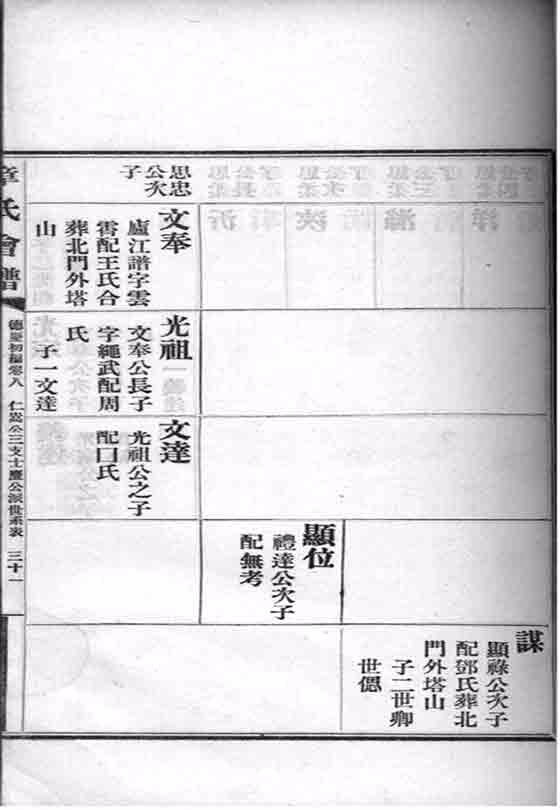 思忠
公次
子
文奉
廬江譜字雲
配王氏合
葬北門外塔
山
光祖
文奉公長子
字繩武配周
氏 子一文達
文達
光祖公之子
配口氏
顯位
禮達公次子
配無考
謀
顯祿公次子
配鄧氏葬北
門外塔山
子二世卿
世偲
章氏會譜 德慶初編卷八 仁嵩公三支士慶公派世系表 三十一